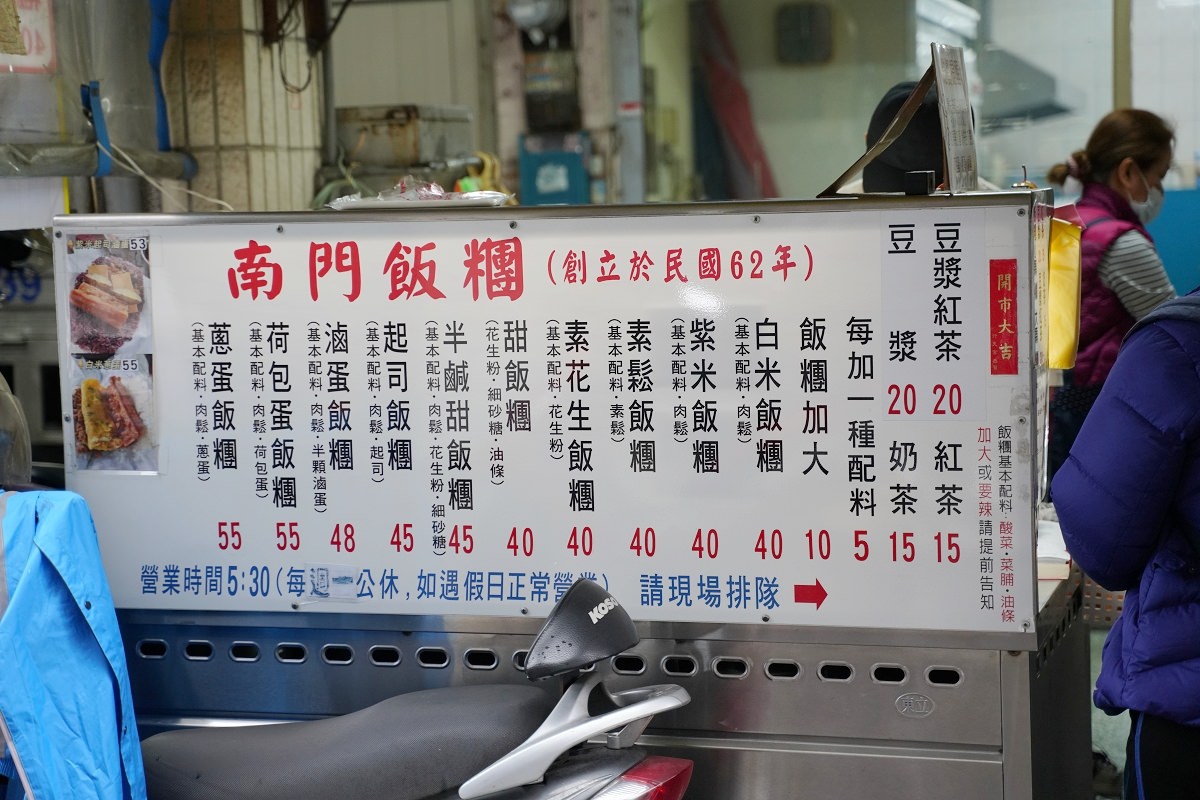 南門飯糰(創立於民國62年)
豆漿紅茶 20
紅茶 15
豆漿 20
奶茶 15
每加一種配料 5
飯糰加大 10
白米飯糰 40
(基本配料·肉鬆)
紫米飯糰 40
(基本配料·肉鬆)
素鬆飯糰 40
(基本配料·素鬆)
素花生飯糰 40
(基本配料·花生粉)
甜飯糰 40
(花生粉·細砂糖·油條)
半鹹甜飯糰 45
(基本配料·肉鬆·花生粉·細砂糖)
起司飯糰 45
(基本配料·肉鬆·起司)
滷蛋飯糰 48
(基本配料·肉鬆·半顆滷蛋)
荷包蛋飯糰 55
(基本配料·肉鬆·荷包蛋)
蔥蛋飯糰 55
(基本配料·肉鬆·蔥蛋)
飯糰基本配料:酸菜·菜脯·油條
加大或要辣請提前告知
開市大吉
紫米起司滷蛋53
白米蔥蛋55
營業時間5:30(每週 公休,如遇假日正常營業) 請現場排隊
KOSO
東立
39